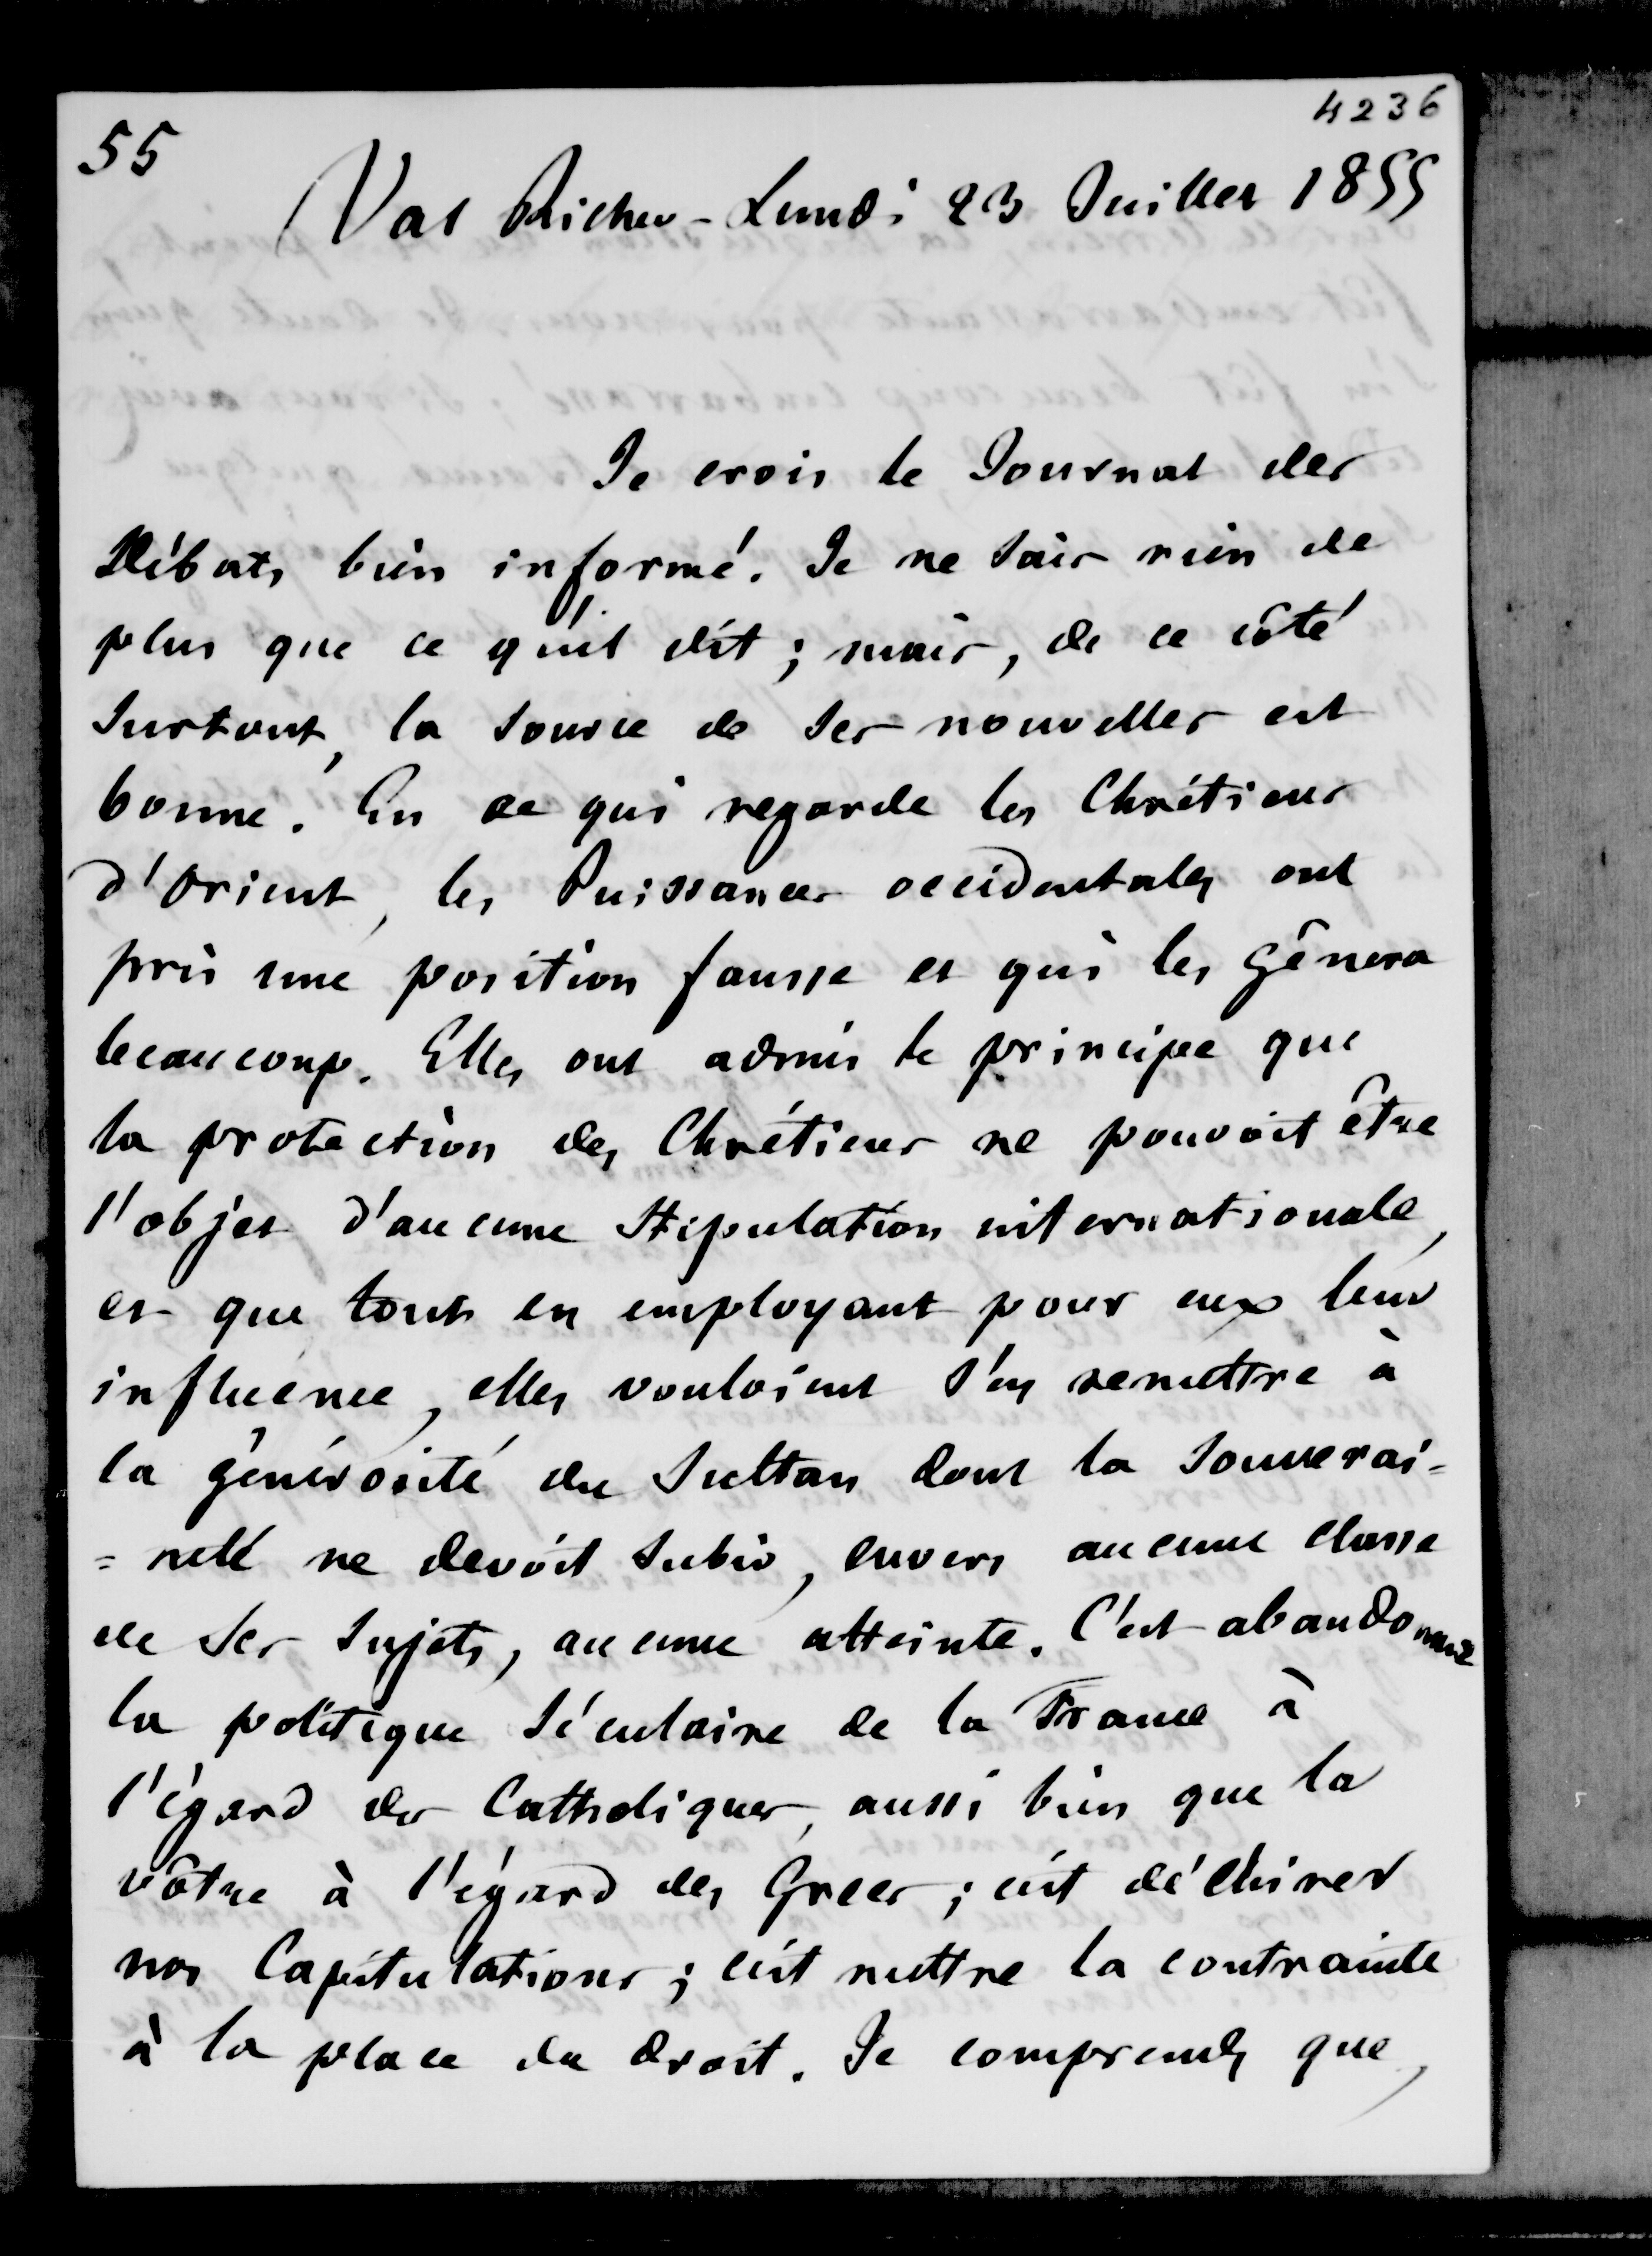 4236
55
Val Richer - Lundi 23 Juillet 1855
Je crois le Journal des
Débats bien informé. Je ne sais rien de
plus que ce qu'il dit ; mais, de ce côté
surtout, la source de ses nouvelles est
bonne. En ce qui regarde les Chrétiens
d'Orient, les Puissances occidentales ont
pris une position fausse et qui les gênera
beaucoup. Elles ont admis le principe que
la protection des Chrétiens ne pouvoit être
l'objet d'aucune stipulation internationale,
et que tout en employant pour eux leur
influence, elles vouloient s'en remettre à
la générosité du Sultan dont la souverai=
=neté ne devoit subir, envers aucune classe
de ses sujets, aucune atteinte. C'est abandonner
la politique séculaire de la France à
l'égard des Catholiques, aussi bien que la
vôtre à l'égard des Grecs ; c'est déchirer
nos Capitulations ; c'est mettre la contrainte
à la place du droit. Je comprends que,